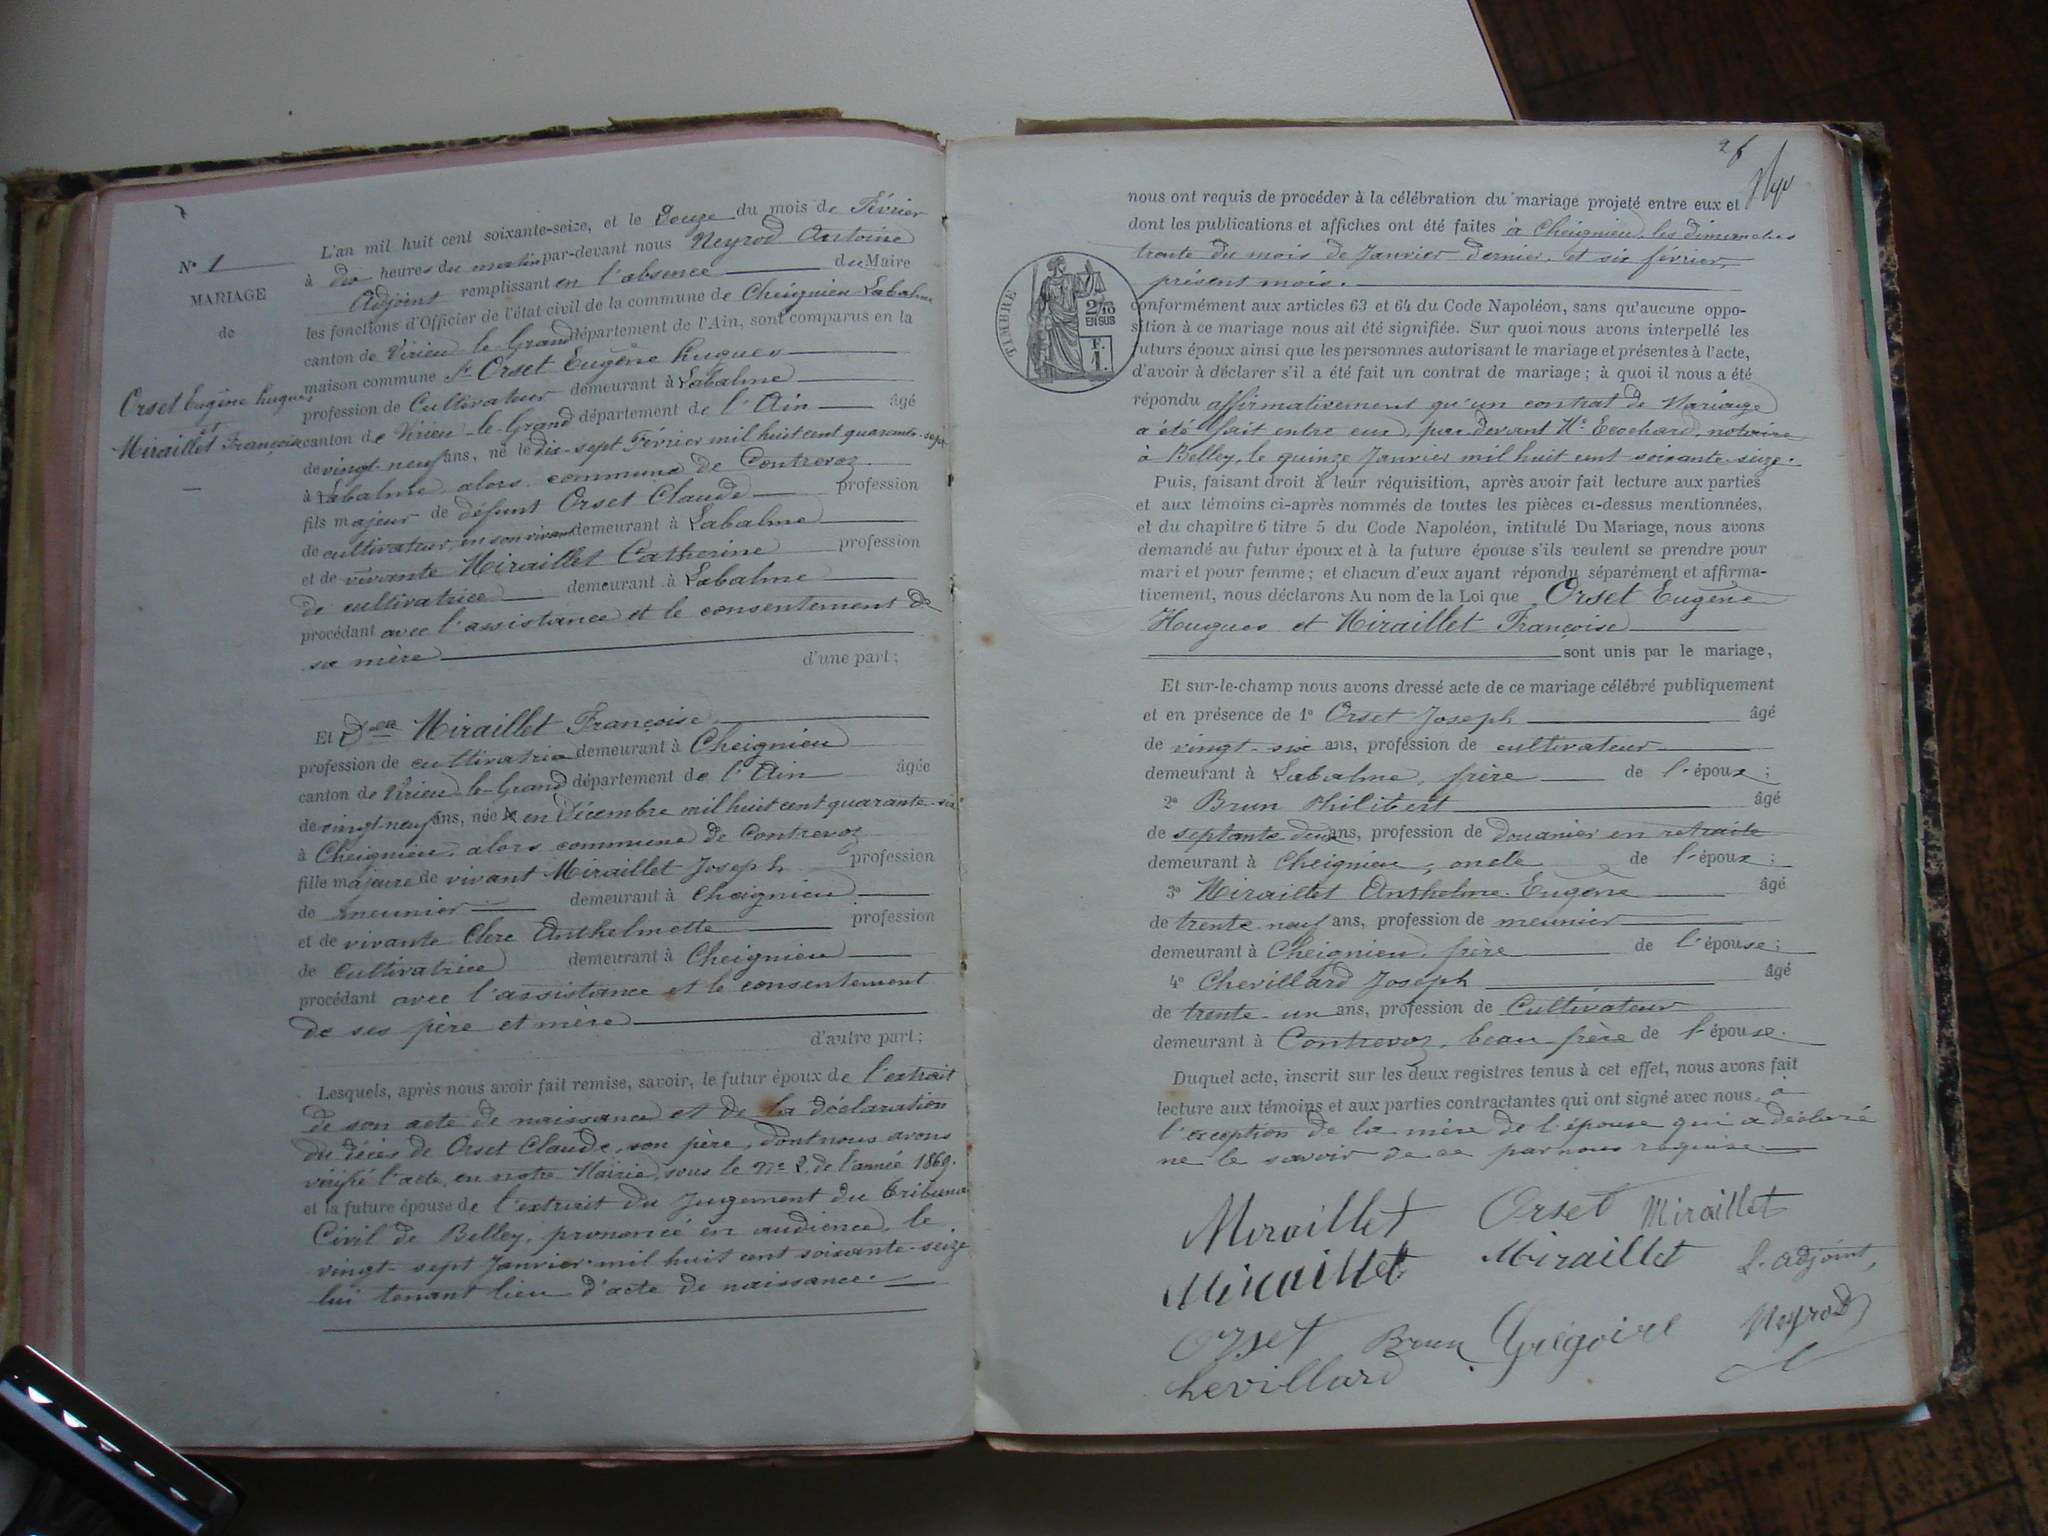 N° 1
MARIAGE
de
Orset Eugène hugues
et
Miraillet Françoise
L'an mil huit cent soixante-seize, et le Douze du mois de Février
à dix heures du matin par-devant nous Neyrod Antoine
Adjoint remplissant en l'absence du Maire
les fonctions d'Officier de l'état civil de la commune de Cheignieu-Labalme
canton de Virieu-le-Grand département de l'Ain, sont comparus en la
maison commune Sr Orset Eugène hugues
profession de Cultivateur demeurant à Labalme
canton de Virieu-le-Grand département de l'Ain âgé
de vingt-neuf ans, né le dix-sept Février mil huit cent quarante-sept
à Labalme, alors commune de Contrevoz
fils majeur de défunt Orset Claude profession
de cultivateur, en son vivant demeurant à Labalme
et de vivante Miraillet Catherine profession
de cultivatrice demeurant à Labalme
procédant avec l'assistance et le consentement de
sa mère
d'une part;
Et Delle Miraillet Françoise
profession de cultivatrice demeurant à Cheignieu
canton de Virieu-le-Grand département de l'Ain âgée
de vingt-neuf ans, née en Décembre mil huit cent quarante-six
à Cheignieu, alors commune de Contrevoz
fille majeure de vivant Miraillet Joseph profession
de meunier demeurant à Cheignieu
et de vivante Clerc Anthelmette profession
de Cultivatrice demeurant à Cheignieu
procédant avec l'assistance et le consentement
de ses père et mère
d'autre part;
Lesquels, après nous avoir fait remise, savoir, le futur époux de l'extrait
de son acte de naissance et de la déclaration
du décès de Orset Claude, son père, dont nous avons
vérifié l'acte, en notre Mairie, sous le N° 2 de l'année 1869.
et la future épouse de l'extrait du Jugement du tribunal
Civil de Belley, prononcé en audience, le
vingt-sept Janvier mil huit cent soixante-seize
lui tenant lieu d'acte de naissance.
26
TIMBRE
2/10
EN SUS
F.
1.
nous ont requis de procéder à la célébration du mariage projeté entre eux et
dont les publications et affiches ont été faites à Cheignieu, les dimanches
trente du mois de Janvier dernier, et six février,
présent mois.
conformément aux articles 63 et 64 du Code Napoléon, sans qu'aucune oppo-
sition à ce mariage nous ait été signifiée. Sur quoi nous avons interpellé les
futurs époux ainsi que les personnes autorisant le mariage et présentes à l'acte,
d'avoir à déclarer s'il a été fait un contrat de mariage; à quoi il nous a été
répondu affirmativement qu'un contrat de Mariage
a été fait entre eux, par devant Me Ecochard, notaire
à Belley, le quinze Janvier mil huit cent soixante-seize.
Puis, faisant droit à leur réquisition, après avoir fait lecture aux parties
et aux témoins ci-après nommés de toutes les pièces ci-dessus mentionnées,
et du chapitre 6 titre 5 du Code Napoléon, intitulé Du Mariage, nous avons
demandé au futur époux et à la future épouse s'ils veulent se prendre pour
mari et pour femme; et chacun d'eux ayant répondu séparément et affirma-
tivement, nous déclarons Au nom de la Loi que Orset Eugène
Hugues et Miraillet Françoise
sont unis par le mariage,
Et sur-le-champ nous avons dressé acte de ce mariage célébré publiquement
et en présence de 1° Orset Joseph âgé
de vingt-six ans, profession de cultivateur
demeurant à Labalme, frère de l'époux;
2° Brun Philibert âgé
de septante deux ans, profession de douanier en retraite
demeurant à Cheignieu, oncle de l'époux;
3° Miraillet Anthelme-Eugène âgé
de trente neuf ans, profession de meunier
demeurant à Cheignieu, frère de l'épouse;
4° Chevillard Joseph âgé
de trente-un ans, profession de Cultivateur
demeurant à Contrevoz, beau frère de l'épouse.
Duquel acte, inscrit sur les deux registres tenus à cet effet, nous avons fait
lecture aux témoins et aux parties contractantes qui ont signé avec nous, à
l'exception de la mère de l'épouse qui a déclaré
ne le savoir de ce par nous requise
Miraillet Orset Miraillet
Miraillet Miraillet L'adjoint,
Orset Brun Grégoire Neyrod
Chevillard